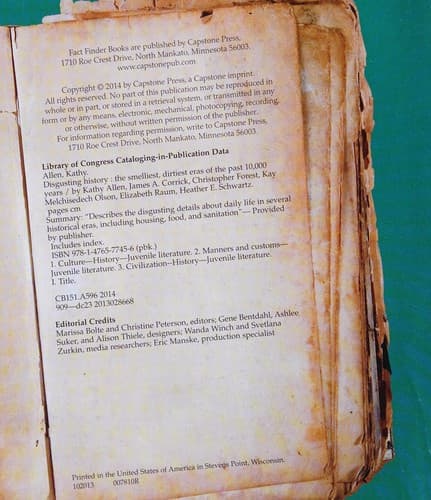 Fact Finder Books are published by Capstone Press,
1710 Roe Crest Drive, North Mankato, Minnesota 56003.
www.capstonepub.com
Copyright © 2014 by Capstone Press, a Capstone imprint.
All rights reserved. No part of this publication may be reproduced in
whole or in part, or stored in a retrieval system, or transmitted in any
form or by any means, electronic, mechanical, photocopying, recording,
or otherwise, without written permission of the publisher.
For information regarding permission, write to Capstone Press,
1710 Roe Crest Drive, North Mankato, Minnesota 56003.
Library of Congress Cataloging-in-Publication Data
Allen, Kathy.
Disgusting history : the smelliest, dirtiest eras of the past 10,000
years / by Kathy Allen, James A. Corrick, Christopher Forest, Kay
Melchisedech Olson, Elizabeth Raum, Heather E. Schwartz.
pages cm
Summary: "Describes the disgusting details about daily life in several
historical eras, including housing, food, and sanitation"— Provided
by publisher.
Includes index.
ISBN 978-1-4765-7745-6 (pbk.)
1. Culture—History—Juvenile literature. 2. Manners and customs—
Juvenile literature. 3. Civilization--History—Juvenile literature.
I. Title.
CB151.A596 2014
909—dc23 2013028668
Editorial Credits
Marissa Bolte and Christine Peterson, editors; Gene Bentdahl, Ashlee
Suker, and Alison Thiele, designers; Wanda Winch and Svetlana
Zurkin, media researchers; Eric Manske, production specialist
Printed in the United States of America in Stevens Point, Wisconsin.
102013 007810R